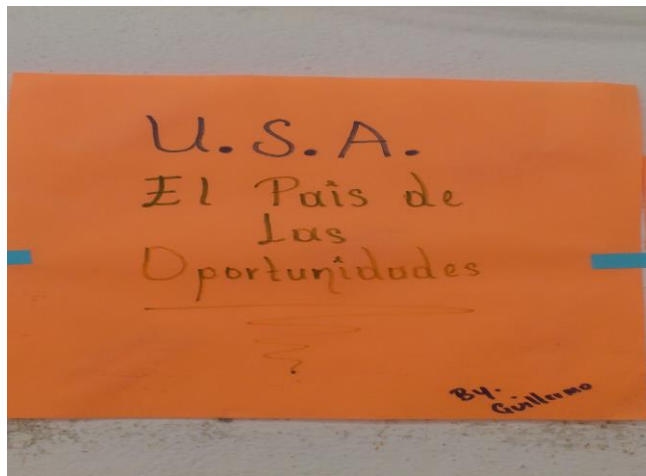 U.S.A.
El Pais de
Las
Oportunidades
By.
Guillermo